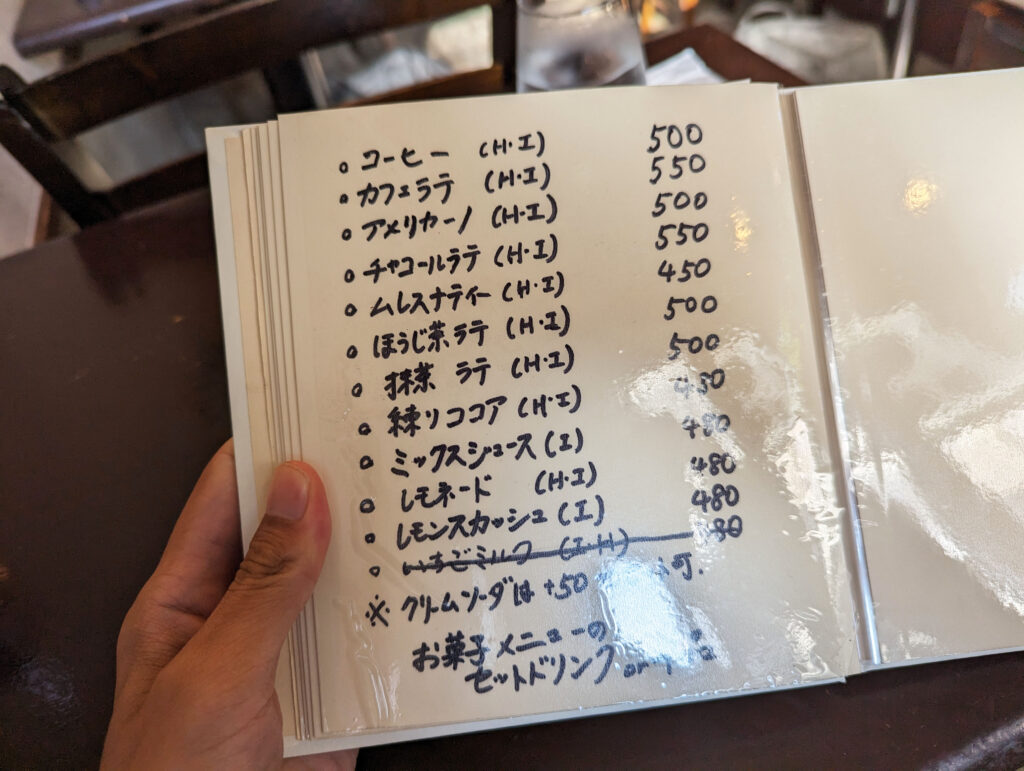 。コーヒー (H・I) 500
。カフェラテ (H・I) 550
。アメリカーノ (H・I) 500
。チャコールラテ (H・I) 550
。ムレスナティー (H・I) 450
。ほうじ茶ラテ (H・I) 500
。抹茶 ラテ (H・I) 500
。練りココア (H・I) 480
。ミックスジュース (I) 480
。レモネード (H・I) 480
。レモンスカッシュ (I) 480
。いちごミルク (I・H)
※ クリームソーダは +50 可.
お菓子メニューの
セットドリンク